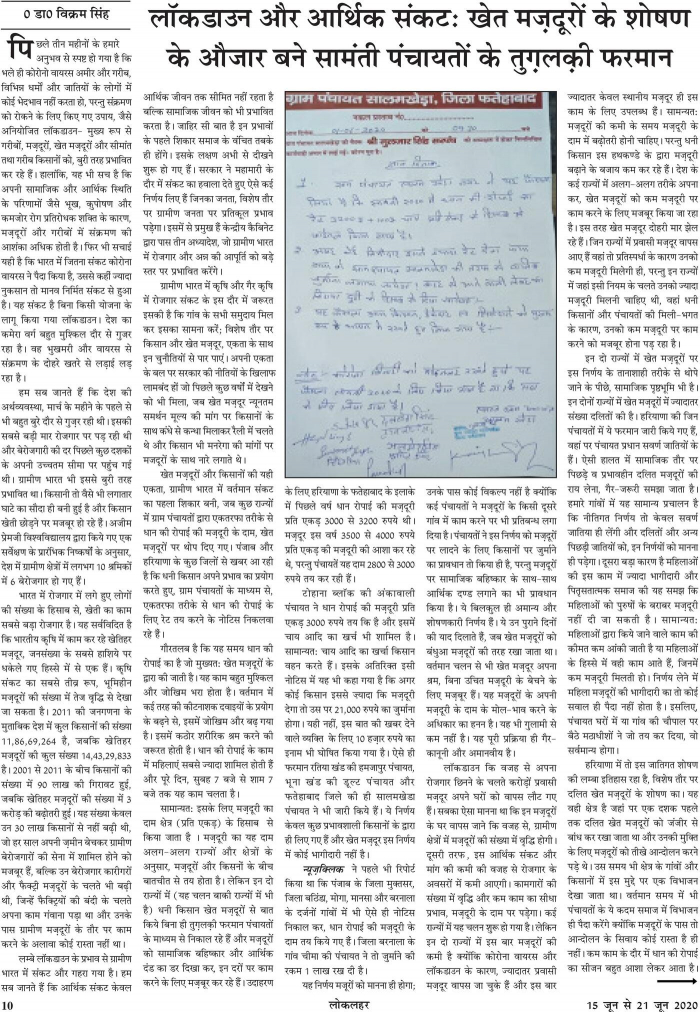 0 डा0 विक्रम सिंह
लॉकडाउन और आर्थिक संकटः खेत मज़दूरों के शोषण
के औजार बने सामंती पंचायतों के तुग़लक़ी फरमान
पिछले तीन महीनों के हमारे
अनुभव से स्पष्ट हो गया है कि
भले ही कोरोना वायरस अमीर और गरीब,
विभिन्न धर्मों और जातियों के लोगों में
कोई भेदभाव नहीं करता हो, परन्तु संक्रमण
को रोकने के लिए किए गए उपाय, जैसे
अनियोजित लॉकडाउन- मुख्य रूप से
गरीबों, मजूदरों, खेत मजदूरों और सीमांत
तथा गरीब किसानों को, बुरी तरह प्रभावित
कर रहे हैं। हालांकि, यह भी सच है कि
अपनी सामाजिक और आर्थिक स्थिति
के परिणामों जैसे भूख, कुपोषण और
कमजोर रोग प्रतिरोधक शक्ति के कारण,
मजदूरों और गरीबों में संक्रमण की
आशंका अधिक होती है। फिर भी सचाई
यही है कि भारत में जितना संकट कोरोना
वायरस ने पैदा किया है, उससे कहीं ज्यादा
नुकसान तो मानव निर्मित संकट से हुआ
है। यह संकट है बिना किसी योजना के
लागू किया गया लॉकडाउन। देश का
कमेरा वर्ग बहुत मुश्किल दौर से गुजर
रहा है। वह भुखमरी और वायरस से
संक्रमण के दोहरे खतरे से लड़ाई लड़
रहा है।
हम सब जानते हैं कि देश की
अर्थव्यवस्था, मार्च के महीने के पहले से
भी बहुत बुरे दौर से गुजर रही थी। इसकी
सबसे बड़ी मार रोजगार पर पड़ रही थी
और बेरोजगारी की दर पिछले कुछ दशकों
के अपनी उच्चतम सीमा पर पहुंच गई
थी। ग्रामीण भारत भी इससे बुरी तरह
प्रभावित था। किसानी तो वैसे भी लगातार
घाटे का सौदा ही बनी हुई है और किसान
खेती छोड़ने पर मजबूर हो रहे हैं। अजीम
प्रेमजी विश्वविद्यालय द्वारा किये गए एक
सर्वेक्षण के प्रारंभिक निष्कर्षों के अनुसार,
देश में ग्रामीण क्षेत्रों में लगभग 10 श्रमिकों
में 6 बेरोजगार हो गए हैं।
भारत में रोजगार में लगे हुए लोगों
की संख्या के हिसाब से, खेती का काम
सबसे बड़ा रोजगार है। यह सर्वविदित है
कि भारतीय कृषि में काम कर रहे खेतिहर
मजदूर, जनसंख्या के सबसे हाशिये पर
धकेले गए हिस्से में से एक हैं। कृषि
संकट का सबसे तीव्र रूप, भूमिहीन
मजदूरों की संख्या में तेज वृद्धि से देखा
जा सकता है। 2011 की जनगणना के
मुताबिक देश में कुल किसानों की संख्या
11,86,69,264 है, जबकि खेतिहर
मजदूरों की कुल संख्या 14,43,29,833
है। 2001 से 2011 के बीच किसानों की
संख्या में 90 लाख की गिरावट हुई,
जबकि खेतिहर मजदूरों की संख्या में 3
करोड़ की बढ़ोतरी हुई। यह संख्या केवल
उन 30 लाख किसानों से नहीं बढ़ी थी,
जो हर साल अपनी जमीन बेचकर ग्रामीण
बेरोजगारों की सेना में शामिल होने को
मजबूर हैं, बल्कि उन बेरोजगार कारीगरों
और फैक्ट्री मजदूरों के चलते भी बढ़ी
थी, जिन्हें फैक्ट्रियों की बंदी के चलते
अपना काम गंवाना पड़ा था और उनके
पास ग्रामीण मजदूरों के तौर पर काम
करने के अलावा कोई रास्ता नहीं था।
लम्बे लॉकडाउन के प्रभाव से ग्रामीण
भारत में संकट और गहरा गया है। हम
सब जानते हैं कि आर्थिक संकट केवल
आर्थिक जीवन तक सीमित नहीं रहता है
बल्कि सामाजिक जीवन को भी प्रभावित
करता है। जाहिर सी बात है इन प्रभावों
के पहले शिकार समाज के वंचित तबके
ही होंगे। इसके लक्षण अभी से दीखने
शुरू हो गए हैं। सरकार ने महामारी के
दौर में संकट का हवाला देते हुए ऐसे कई
निर्णय लिए हैं जिनका जनता, विशेष तौर
पर ग्रामीण जनता पर प्रतिकूल प्रभाव
पड़ेगा। इसमें से प्रमुख हैं केन्द्रीय कैबिनेट
द्वारा पास तीन अध्यादेश, जो ग्रामीण भारत
में रोजगार और अन्न की आपूर्ति को बड़े
स्तर पर प्रभावित करेंगे।
ग्रामीण भारत में कृषि और गैर कृषि
में रोजगार संकट के इस दौर में जरूरत
इसकी है कि गांव के सभी समुदाय मिल
कर इसका सामना करें; विशेष तौर पर
किसान और खेत मजदूर, एकता के साथ
इन चुनौतियों से पार पाएं। अपनी एकता
के बल पर सरकार की नीतियों के खिलाफ
लामबंद हों जो पिछले कुछ वर्षों में देखने
को भी मिला, जब खेत मजदूर न्यूनतम
समर्थन मूल्य की मांग पर किसानों के
साथ कंधे से कन्धा मिलाकर रैली में चलते
थे और किसान भी मनरेगा की मांगों पर
मजदूरों के साथ नारे लगाते थे।
खेत मजदूरों और किसानों की यही
एकता, ग्रामीण भारत में वर्तमान संकट
का पहला शिकार बनी, जब कुछ राज्यों
में ग्राम पंचायतों द्वारा एकतरफा तरीके से
धान की रोपाई की मजदूरी के दाम, खेत
मजदूरों पर थोप दिए गए। पंजाब और
हरियाणा के कुछ जिलों से खबर आ रही
है कि धनी किसान अपने प्रभाव का प्रयोग
करते हुए, ग्राम पंचायतों के माध्यम से,
एकतरफा तरीके से धान की रोपाई के
लिए रेट तय करने के नोटिस निकलवा
रहे हैं।
गौरतलब है कि यह समय धान की
रोपाई का है जो मुख्यतः खेत मजदूरों के
द्वारा की जाती है। यह काम बहुत मुश्किल
और जोखिम भरा होता है। वर्तमान में
कई तरह की कीटनाशक दवाइयों के प्रयोग
के बढ़ने से, इसमें जोखिम और बढ़ गया
है। इसमें कठोर शारीरिक श्रम करने की
जरूरत होती है। धान की रोपाई के काम
में महिलाएं सबसे ज्यादा शामिल होती हैं
और पूरे दिन, सुबह 7 बजे से शाम 7
बजे तक यह काम चलता है।
सामान्यतः इसके लिए मजदूरी का
दाम क्षेत्र (प्रति एकड़) के हिसाब से
किया जाता है । मजदूरी का यह दाम
अलग-अलग राज्यों और क्षेत्रों के
अनुसार, मजदूरों और किसनों के बीच
बातचीत से तय होता है। लेकिन इन दो
राज्यों में (यह चलन बाकी राज्यों में भी
है) धनी किसान खेत मजदूरों से बात
किये बिना ही तुगलक़ी फरमान पंचायतों
के माध्यम से निकाल रहे हैं और मजदूरों
को सामाजिक बहिष्कार और आर्थिक
दंड का डर दिखा कर, इन दरों पर काम
करने के लिए मजबूर कर रहे हैं। उदाहरण
ग्राम पंचायत सालमखेड़ा, जिला फतेहाबाद
के लिए हरियाणा के फतेहाबाद के इलाके
में पिछले वर्ष धान रोपाई की मजदूरी
प्रति एकड़ 3000 से 3200 रुपये थी।
मजदूर इस वर्ष 3500 से 4000 रुपये
प्रति एकड़ की मजदूरी की आशा कर रहे
थे, परन्तु पंचायतें यह दाम 2800 से 3000
रुपये तय कर रही हैं।
टोहाना ब्लॉक की अंकावाली
पंचायत ने धान रोपाई की मजदूरी प्रति
एकड़ 3000 रुपये तय कि है और इसमें
चाय आदि का खर्च भी शामिल है।
सामान्यतः चाय आदि का खर्चा किसान
वहन करते हैं। इसके अतिरिक्त इसी
नोटिस में यह भी कहा गया है कि अगर
कोई किसान इससे ज्यादा कि मजदूरी
देगा तो उस पर 21,000 रुपये का जुर्माना
होगा। यही नहीं, इस बात की खबर देने
वाले व्यक्ति के लिए 10 हजार रुपये का
इनाम भी घोषित किया गया है। ऐसे ही
फरमान रतिया खंड की हमजापुर पंचायत,
भूना खंड की डूल्ट पंचायत और
फतेहाबाद जिले की ही सालमखेडा
पंचायत ने भी जारी किये हैं। ये निर्णय
केवल कुछ प्रभावशाली किसानों के द्वारा
ही लिए गए हैं और खेत मजदूर इस निर्णय
में कोई भागीदारी नहीं है।
न्यूज़क्लिक ने पहले भी रिपोर्ट
किया था कि पंजाब के जिला मुक्तसर,
जिला बठिंडा, मोगा, मानसा और बरनाला
के दर्जनों गांवों में भी ऐसे ही नोटिस
निकाल कर, धान रोपाई की मजदूरी के
दाम तय किये गए हैं। जिला बरनाला के
गांव चीमा की पंचायत ने तो जुर्माने की
रकम 1 लाख रख दी है।
यह निर्णय मजूरों को मानना ही होगा;
उनके पास कोई विकल्प नहीं है क्योंकि
कई पंचायतों ने मजदूरों के किसी दूसरे
गांव में काम करने पर भी प्रतिबन्ध लगा
दिया है। पंचायतों ने इस निर्णय को मजदूरों
पर लादने के लिए किसानों पर जुर्माने
का प्रावधान तो किया ही है, परन्तु मजदूरों
पर सामाजिक बहिष्कार के साथ-साथ
आर्थिक दण्ड लगाने का भी प्रावधान
किया है। ये बिलकुल ही अमान्य और
शोषणकारी निर्णय हैं। ये उन पुराने दिनों
की याद दिलाते हैं, जब खेत मजदूरों को
बंधुआ मजदूरों की तरह रखा जाता था।
वर्तमान चलन से भी खेत मजदूर अपना
श्रम, बिना उचित मजदूरी के बेचने के
लिए मजबूर हैं। यह मजदूरों के अपनी
मजदूरी के दाम के मोल-भाव करने के
अधिकार का हनन है। यह भी गुलामी से
कम नहीं है। यह पूरी प्रक्रिया ही गैर-
कानूनी और अमानवीय है।
लॉकडाउन कि वजह से अपना
रोजगार छिनने के चलते करोड़ों प्रवासी
मजदूर अपने घरों को वापस लौट गए
हैं। सबका ऐसा मानना था कि इन मजदूरों
के घर वापस जाने कि वजह से, ग्रामीण
क्षेत्रों में मजदूरों की संख्या में वृद्धि होगी।
दूसरी तरफ , इस आर्थिक संकट और
मांग की कमी की वजह से रोजगार के
अवसरों में कमी आएगी। कामगारों की
संख्या में वृद्धि और कम काम का सीधा
प्रभाव, मजदूरी के दाम पर पड़ेगा। कई
राज्यों में यह चलन शुरू हो गया है। लेकिन
इन दो राज्यों में इस बार मजदूरों की
कमी है क्योंकि कोरोना वायरस और
लॉकडाउन के कारण, ज्यादातर प्रवासी
मजदूर वापस जा चुके हैं और इस बार
ज्यादातर केवल स्थानीय मजदूर ही इस
काम के लिए उपलब्ध हैं। सामन्यतः
मजदूरों की कमी के समय मजदूरी के
दाम में बढ़ोतरी होनी चाहिए। परन्तु धनी
किसान इस हथकण्डे के द्वारा मजदूरी
बढ़ाने के बजाय कम कर रहे हैं। देश के
कई राज्यों में अलग-अलग तरीके अपना
कर, खेत मजदूरों को कम मजदूरी पर
काम करने के लिए मजबूर किया जा रहा
है। इस तरह खेत मजदूर दोहरी मार झेल
रहे हैं। जिन राज्यों में प्रवासी मजदूर वापस
आए हैं वहां तो प्रतिस्पर्धा के कारण उनको
कम मजदूरी मिलेगी ही, परन्तु इन राज्यों
में जहां इसी नियम के चलते उनको ज्यादा
मजदूरी मिलनी चाहिए थी, वहां धनी
किसानों और पंचायतों की मिली-भगत
के कारण, उनको कम मजदूरी पर काम
करने को मजबूर होना पड़ रहा है।
इन दो राज्यों में खेत मजदूरों पर
इस निर्णय के तानाशाही तरीके से थोपे
जाने के पीछे, सामाजिक पृष्ठभूमि भी है।
इन दोनों राज्यों में खेत मजदूरों में ज्यादातर
संख्या दलितों की है। हरियाणा की जिन
पंचायतों में ये फरमान जारी किये गए हैं,
वहां पर पंचायत प्रधान सवर्ण जातियों के
हैं। ऐसी हालत में सामाजिक तौर पर
पिछड़े व प्रभावहीन दलित मजदूरों की
राय लेना, गैर-जरूरी समझा जाता है।
हमारे गांवों में यह सामान्य प्रचालन है
कि नीतिगत निर्णय तो केवल सवर्ण
जातिया ही लेंगी और दलितों और अन्य
पिछड़ी जातियों को, इन निर्णयों को मानना
ही पड़ेगा। दूसरा बड़ा कारण है महिलाओं
की इस काम में ज्यादा भागीदारी और
पितृसतात्मक समाज की यह समझ कि
महिलाओं को पुरुषों के बराबर मजदूरी
नहीं दी जा सकती है। सामान्यतः
महिलाओं द्वारा किये जाने वाले काम को
कीमत कम आंकी जाती है या महिलाओं
के हिस्से में वही काम आते हैं, जिनमें
कम मजदूरी मिलती हो। निर्णय लेने में
महिला मजदूरों की भागीदारी का तो कोई
सवाल ही पैदा नहीं होता है। इसलिए,
पंचायत घरों में या गांव की चौपाल पर
बैठे मठाधीशों ने जो तय कर दिया, वो
सर्वमान्य होगा।
हरियाणा में तो इस जातिगत शोषण
का लम्बा इतिहास रहा है, विशेष तौर पर
दलित खेत मजदूरों के शोषण का। यह
वही क्षेत्र है जहां पर एक दशक पहले
तक दलित खेत मजदूरों को जंजीर से
बांध कर रखा जाता था और उनकी मुक्ति
के लिए मजदूरों को तीखे आन्दोलन करने
पड़े थे। उस समय भी क्षेत्र के गांवों और
किसानों में इस मुद्दे पर एक विभाजन
देखा जाता था। वर्तमान समय में भी
पंचायतों के ये कदम समाज में विभाजन
ही पैदा करेंगे क्योंकि मजदूरों के पास तो
आन्दोलन के सिवाय कोई रास्ता है ही
नहीं। कम काम के दौर में धान की रोपाई
का सीजन बहुत आशा लेकर आता है।
10
लोकलहर
15 जून से 21 जून 2020